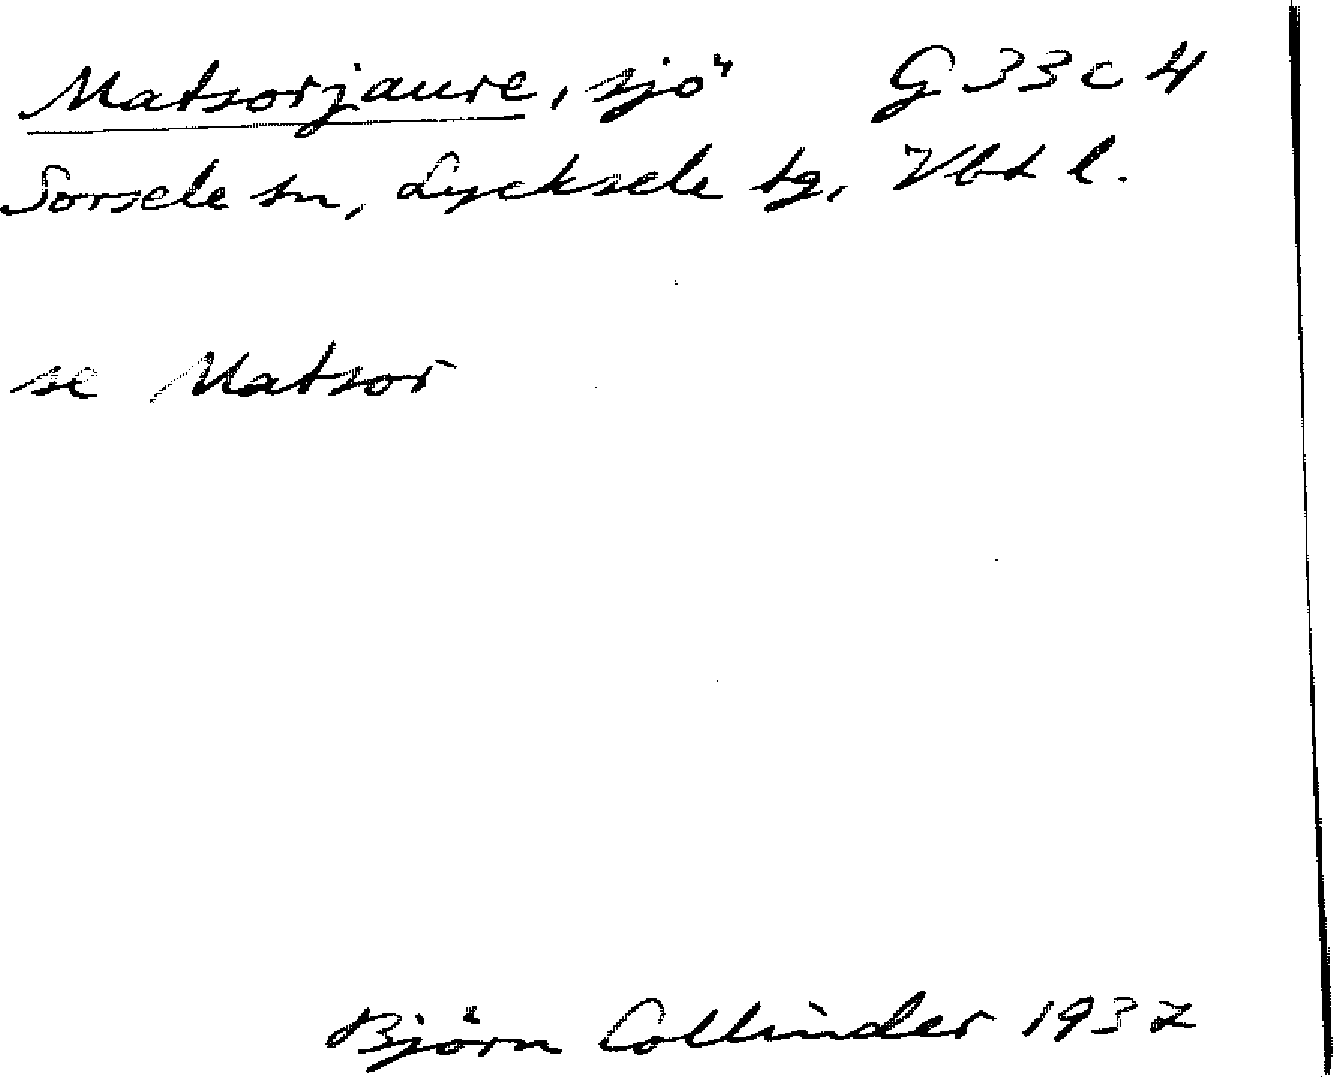 Matsorjaure, sjö G 33 c 4
Sorsele sn, Lycksele tg, Vbt l.
se Matsor
Björn Collinder 1937